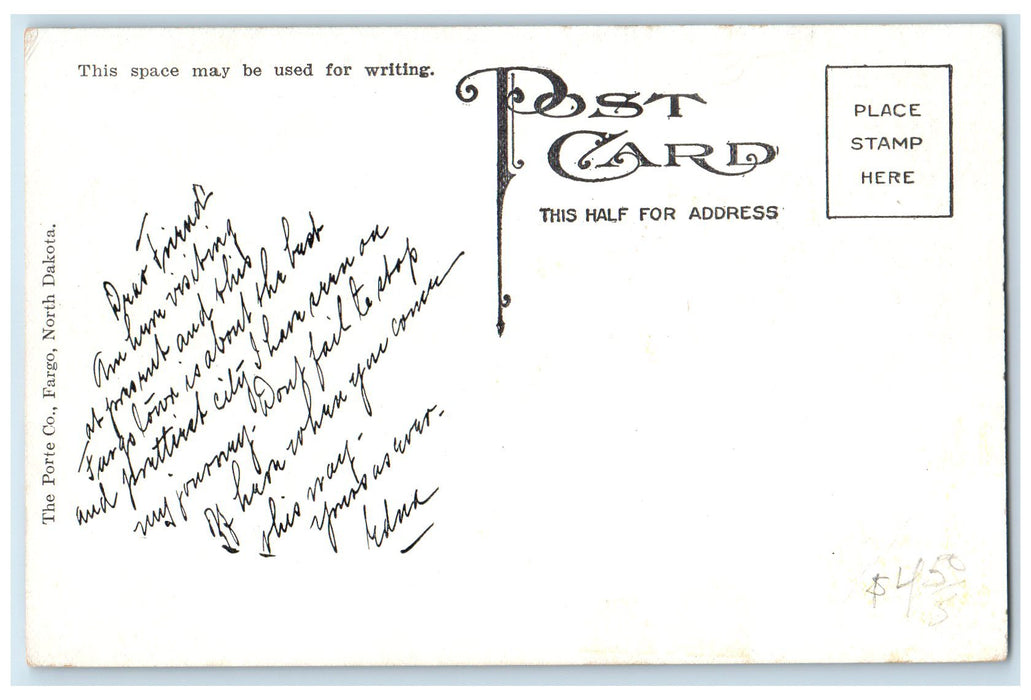 This space may be used for writing.
POST
CARD
THIS HALF FOR ADDRESS
PLACE
STAMP
HERE
The Porte Co., Fargo, North Dakota.
Dear Friend
Am here visiting
at present and this
Fargo town is about the best
and prettiest city I have seen on
my journey. Dont fail to stop
off here when you come
this way.
Yours as ever.
Edna
$4 50
5